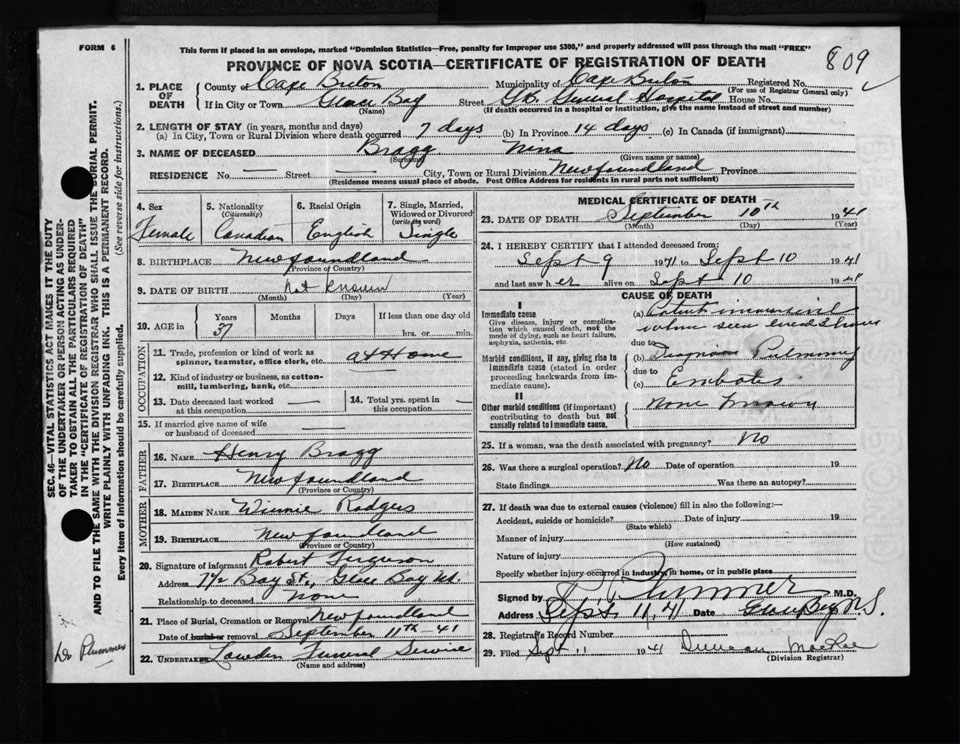 FORM 6
This form if placed in an envelope, marked "Dominion Statistics—Free, penalty for improper use $300," and properly addressed will pass through the mail "FREE"
809
PROVINCE OF NOVA SCOTIA—CERTIFICATE OF REGISTRATION OF DEATH
1. PLACE OF DEATH County of Cape Breton Municipality of Cape Breton Registered No.
(For use of Registrar General only)
If in City or Town Glace Bay Street G.B. General Hospital House No.
(Name) (If death occurred in a hospital or institution, give the name instead of street and number)
2. LENGTH OF STAY (in years, months and days)
(a) In City, Town or Rural Division where death occurred 7 days (b) In Province 14 days (c) In Canada (if immigrant)
3. NAME OF DECEASED Bragg Nina
(Surname) (Given name or names)
RESIDENCE No. — Street — City, Town or Rural Division Newfoundland Province
(Residence means usual place of abode. Post Office Address for residents in rural parts not sufficient)
4. Sex Female
5. Nationality (Citizenship) Canadian
6. Racial Origin English
7. Single, Married, Widowed or Divorced (write the word) Single
8. BIRTHPLACE Newfoundland
(Province or Country)
9. DATE OF BIRTH not known
(Month) (Day) (Year)
10. AGE in Years Months Days If less than one day old
37 hrs. or min.
OCCUPATION
11. Trade, profession or kind of work as spinner, teamster, office clerk, etc. at Home
12. Kind of industry or business, as cotton-mill, lumbering, bank, etc.
13. Date deceased last worked at this occupation —
14. Total yrs. spent in this occupation —
15. If married give name of wife or husband of deceased —
FATHER
16. NAME Henry Bragg
17. BIRTHPLACE Newfoundland
(Province or Country)
MOTHER
18. MAIDEN NAME Winnie Rodgers
19. BIRTHPLACE Newfoundland
(Province or Country)
20. Signature of informant Robert Ferguson
Address 742 Bay St., Glace Bay N.S.
Relationship to deceased None
21. Place of Burial, Cremation or Removal Newfoundland
Date of burial or removal September 11th - 41
22. UNDERTAKER Lowden Funeral Service
(Name and address)
MEDICAL CERTIFICATE OF DEATH
23. DATE OF DEATH September 10th 1941
(Month) (Day) (Year)
24. I HEREBY CERTIFY that I attended deceased from:
Sept 9 1941 to Sept 10 1941
and last saw her alive on Sept 10 1941
CAUSE OF DEATH
I
Immediate cause
Give disease, injury or complication which caused death, not the mode of dying, such as heart failure, asphyxia, asthenia, etc.
(a) Patient
when seen hours
due to
Morbid conditions, if any, giving rise to immediate cause (stated in order proceeding backwards from immediate cause).
(b) Diagnosis Pulmonary
due to
(c) Embolis
II
Other morbid conditions (if important) contributing to death but not causally related to immediate cause.
None known
25. If a woman, was the death associated with pregnancy? No
26. Was there a surgical operation? No Date of operation 19
State findings Was there an autopsy?
27. If death was due to external causes (violence) fill in also the following:—
Accident, suicide or homicide? Date of injury 19
(State which)
Manner of injury
(How sustained)
Nature of injury
Specify whether injury occurred in industry, in home, or in public place
Signed by Plummer M.D.
Address Sept. 11, 41 Date Glace Bay N.S.
28. Registrar's Record Number
29. Filed Sept 11 1941 Duncan MacRae
(Division Registrar)
SEC. 46—VITAL STATISTICS ACT MAKES IT THE DUTY
OF THE UNDERTAKER OR PERSON ACTING AS UNDER-
TAKER TO OBTAIN ALL THE PARTICULARS REQUIRED
IN THE "CERTIFICATE OF REGISTRATION OF DEATH"
AND TO FILE THE SAME WITH THE DIVISION REGISTRAR WHO SHALL ISSUE THE BURIAL PERMIT.
WRITE PLAINLY WITH UNFADING INK. THIS IS A PERMANENT RECORD.
Every item of information should be carefully supplied. (See reverse side for instructions.)
Dr Plummer